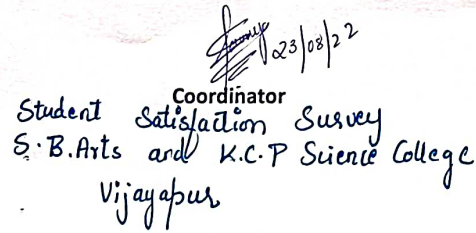 23/08/22
Coordinator
Student Satisfaction Survey
S.B.Arts and K.C.P Science College
Vijayapur